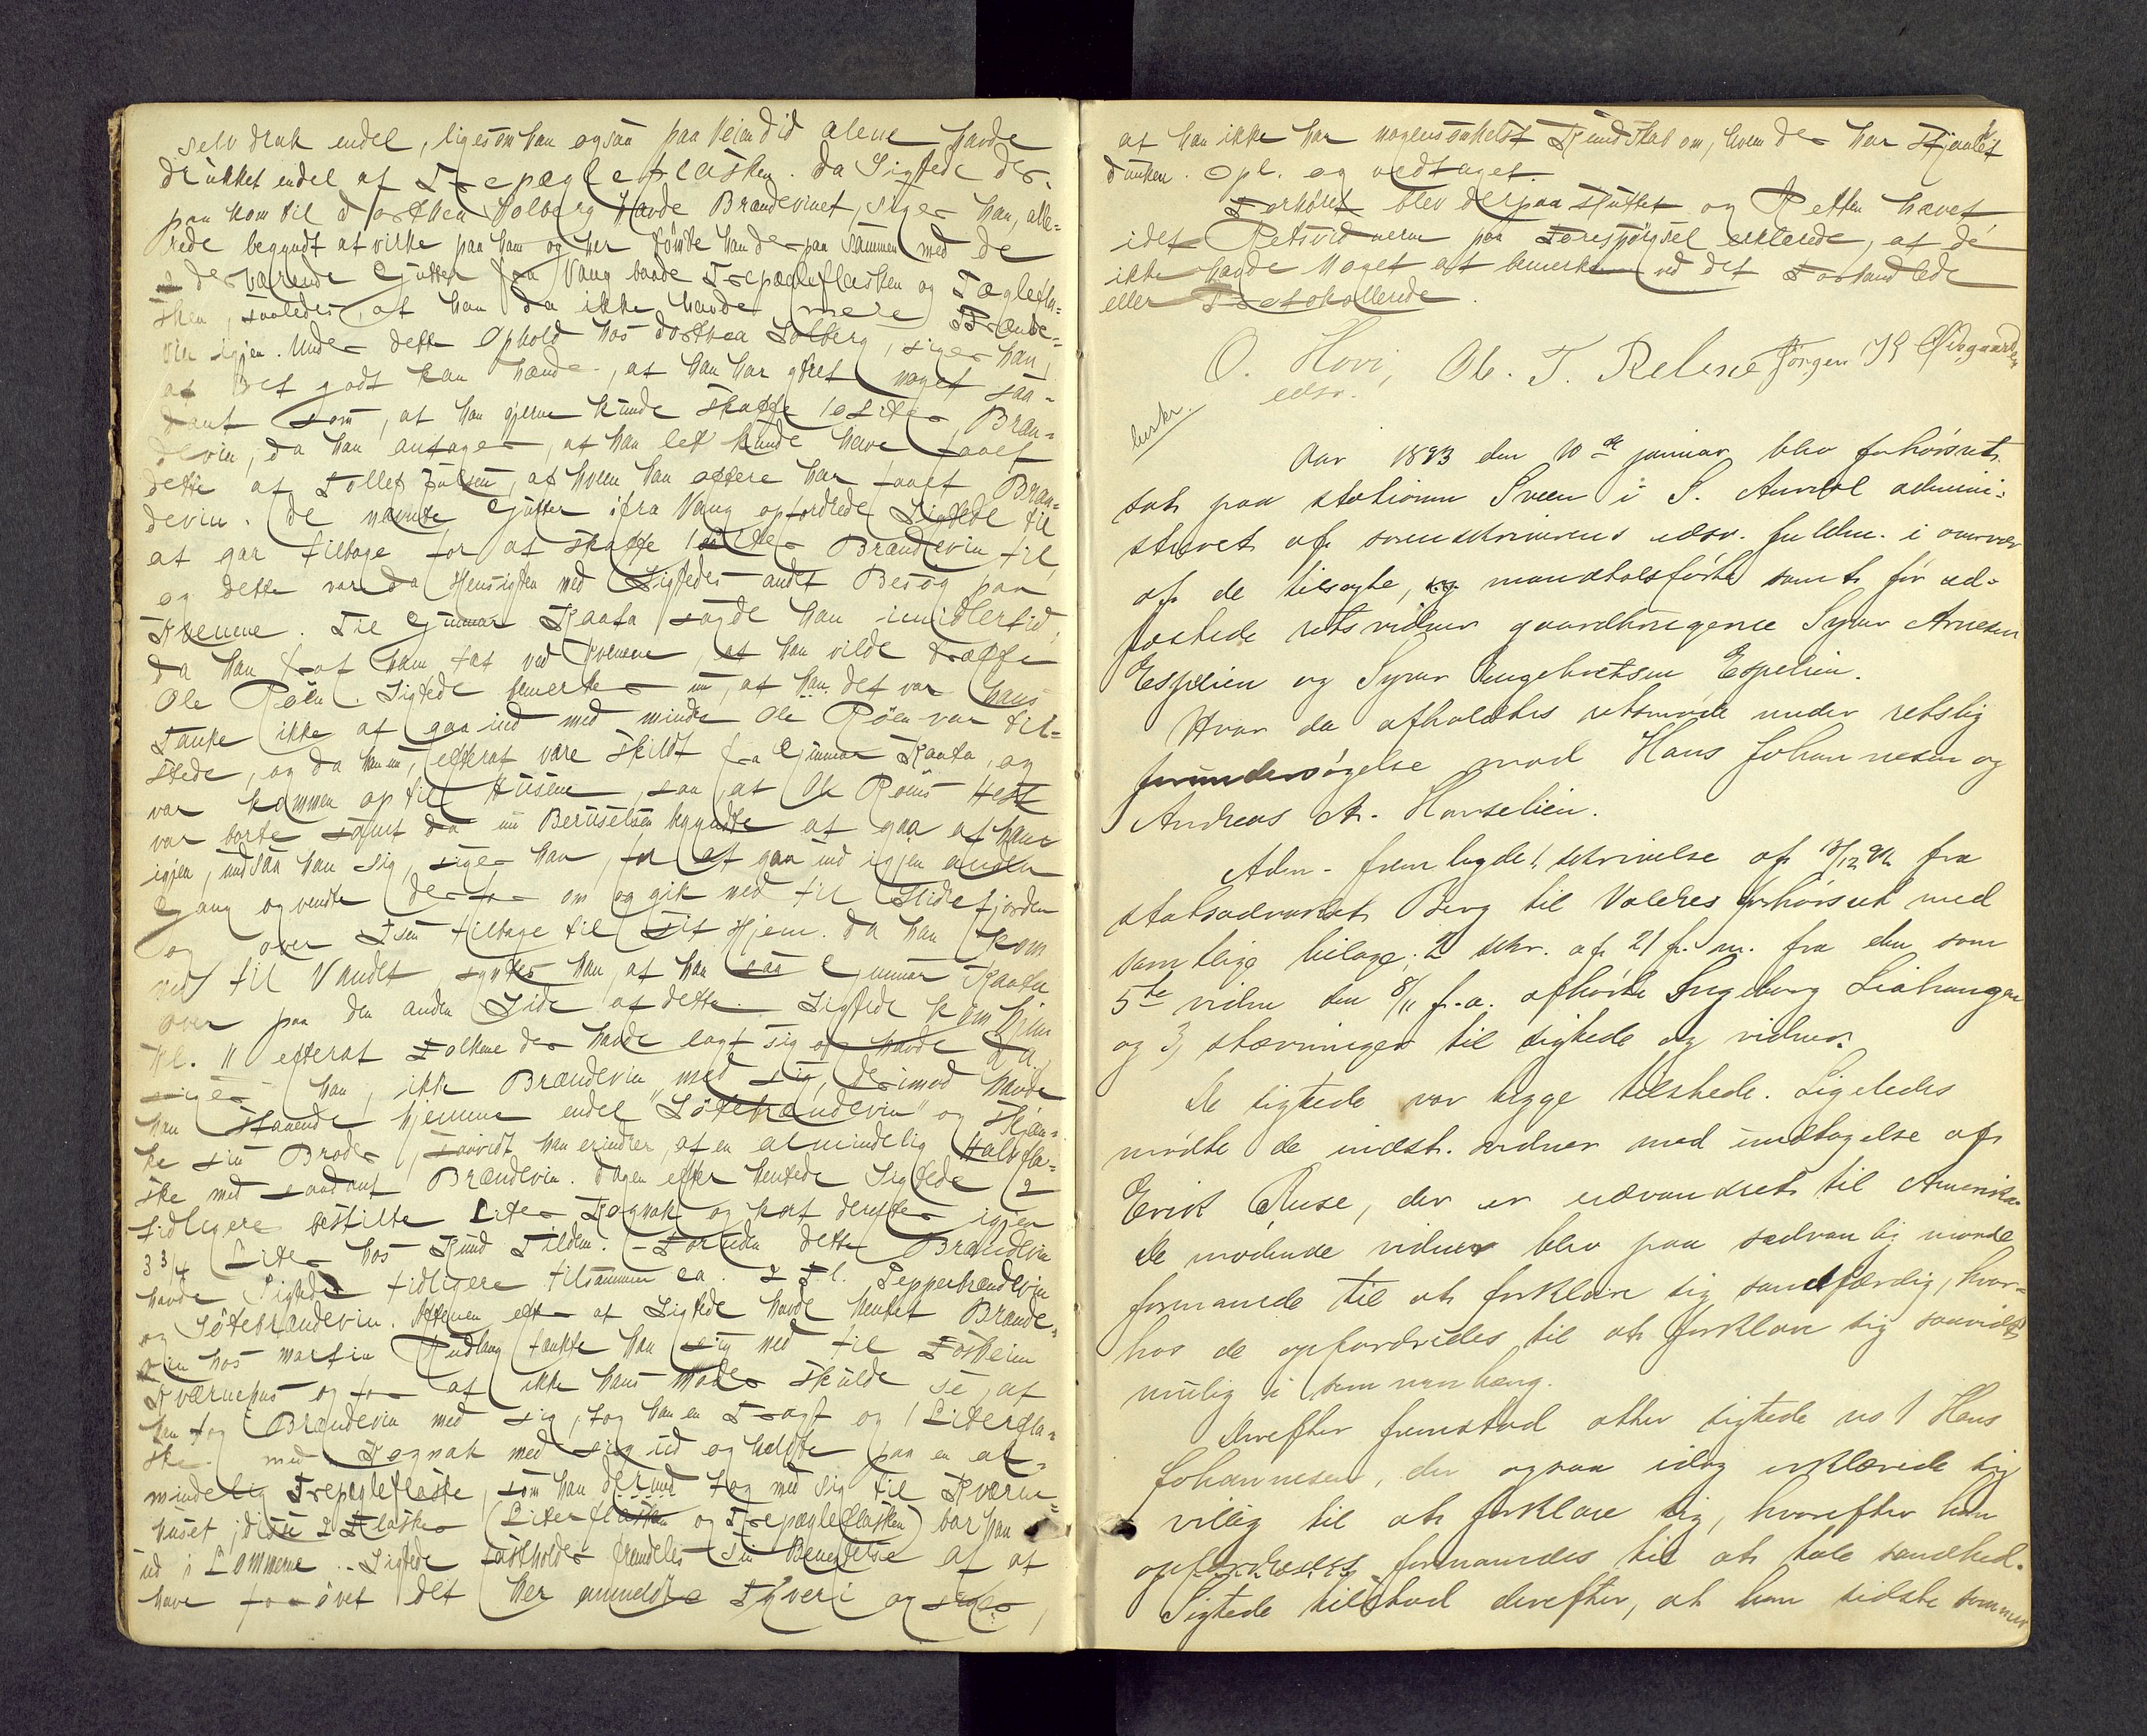 selv drak endel, ligesom han ogsaa paa Veien did alene havde
drukket endel af Trepægleflasken. Da Sigtede der-
paa kom til Dorthea Solberg havde Brændevinet, siger han, alle-
rede begyndt at virke paa ham og her tømte han derpaa sammen med de
2 derværende Gutter fra Vang baade Trepægleflasken og Pæglefla-
sken, saaledes, at han da ikke havde mere Brænde-
vin igjen. Under dette Ophold hos Dorthea Solberg, siger han,
at det godt kan hænde, at han har ytret noget saa-
dant som, at han gjerne kunde skaffe 10 Liter Bræn-
devin, da han antager, at han let kunde have faaet
dette af Tollef Julsen, af hvem han oftere har faaet Bræn-
devin. De nævnte Gutter ifra Vang opfordrede Sigtede til
at gaa tilbage for at skaffe 1 Liter Brændevin til,
og dette var da Hensigten med Sigtedes andet Besøg paa
Kvenne. Til Gunnar Kaata sagde han imidlertid,
da han traf ham tæt ved Kvenne, at han vilde træffe
Ole Röen. Sigtede bemerker nu, at det var hans
Tanke ikke at gaa ind med mindre Ole Röen var til-
stede, og da han nu, efterat være skildt fra Gunnar Kaata, og
var kommen op til Husene, saa, at Ole Röens Hest
var borte samt da nu Beruselsen begyndte at gaa af ham
igjen, undsaa han sig, siger han, for at gaa ind igjen anden
Gang og vendte derfor om og gik ned til Slidrefjorden
og over Isen tilbage til sit Hjem. Da han kom
ned til Vandet syntes han, at han saa Gunnar Kaata
over paa den anden Side af dette. Sigtede kom hjem
Kl. 11 efterat Folkene der havde lagt sig og havde da,
siger han, ikke Brændevin med sig, derimod havde
han staaende hjemme endel "Sötebrændevin" og skjæn-
ke sin Broder, saavidt han erindrer, af en almindelig Halvfla-
ske med saadant Brændevin. Dagen efter hentede Sigtede 2
tidligere bestilte Liter Kognak og kort derefter igjen
3 3/4 Liter hos Knud Tilden. - Foruden dette Brændevin
havde Sigtede tidligere tilsammen ca. 2 Fl. Pepperbrændevin
og Sötebrændevin. Aftenen efter at Sigtede havde hentet Brænde-
vin hos Martin Rudlang tænkte han sig ned til Fosheim
Kværnehus og for at ikke hans Moder skulde se, at
han tog Brændevin med sig, tog han en Tragt og 1 Literfla-
ske med Kognak med sig ud og heldte paa en al-
mindelig Trepægleflaske, som han derud tog med sig til Kværne-
huset; disse 2 Flasker (Literflasken og Trepægleflasken) bar han
ud i Lommerne. Sigtede fastholder fremdeles sin Benegtelse af at
have forøvet det her anmeldte Tyveri og siger,
at han ikke har nogensomhelst Kundskab om, hvem der har stjaalet
dunken. Opl. og vedtaget.
Forhøret blev derpaa sluttet og Retten hævet
idet Retsvidnerne paa Forespörgsel erklærede, at de
ikke havde Noget at bemerke ved det Forhandlede
eller Protokollerede.
O. Hovi, Ol. T. Relene Jörgen K Ödegaarden
edsv.
beskr.
Aar 1893 den 10de januar blev forhörsret
sat paa stationen Sveen i S. Aurdal admini-
streret af sorenskriverens edsv. fuldm. i overvær
af de tilsagte, og mandtalsförte samt för ed-
fæstede retsvidner gaardbrugerne Syver Arnesen
Espelien og Syver Engebretsen Espelien.
Hvor da afholdtes retsmöde under retslig
forundersögelse mod Hans Johannesen og
Andreas A. Havselien.
Adm. fremlagde 1, skrivelse af 17/12 92 fra
statsadvokat Berg til Valdres forhörsret med
samtlige bilage; 2 skr. af 21 f. m. fra den som
5te vidne den 8/11 f. a. afhörte Ingeborg Liahaugen
og 3, stævninger til sigtede og vidner.
De sigtede var begge tilstede. Ligeledes
mödte de indst. vidner med undtagelse af
Erik Ruse, der er udvandret til Amerika.
De mödende vidner blev paa sedvanlig maade
formanede til at forklare sig sandfærdig, hvor-
hos de opfordredes til at forklare sig saavidt
mulig i sammenhæng.
Derefter fremstod atter sigtede no 1 Hans
Johannesen, der ogsaa idag erklærede sig
villig til at forklare sig, hvorefter han
opfordredes formanedes til at tale sandhed.
Sigtede tilstod derefter, at han sidste sommer